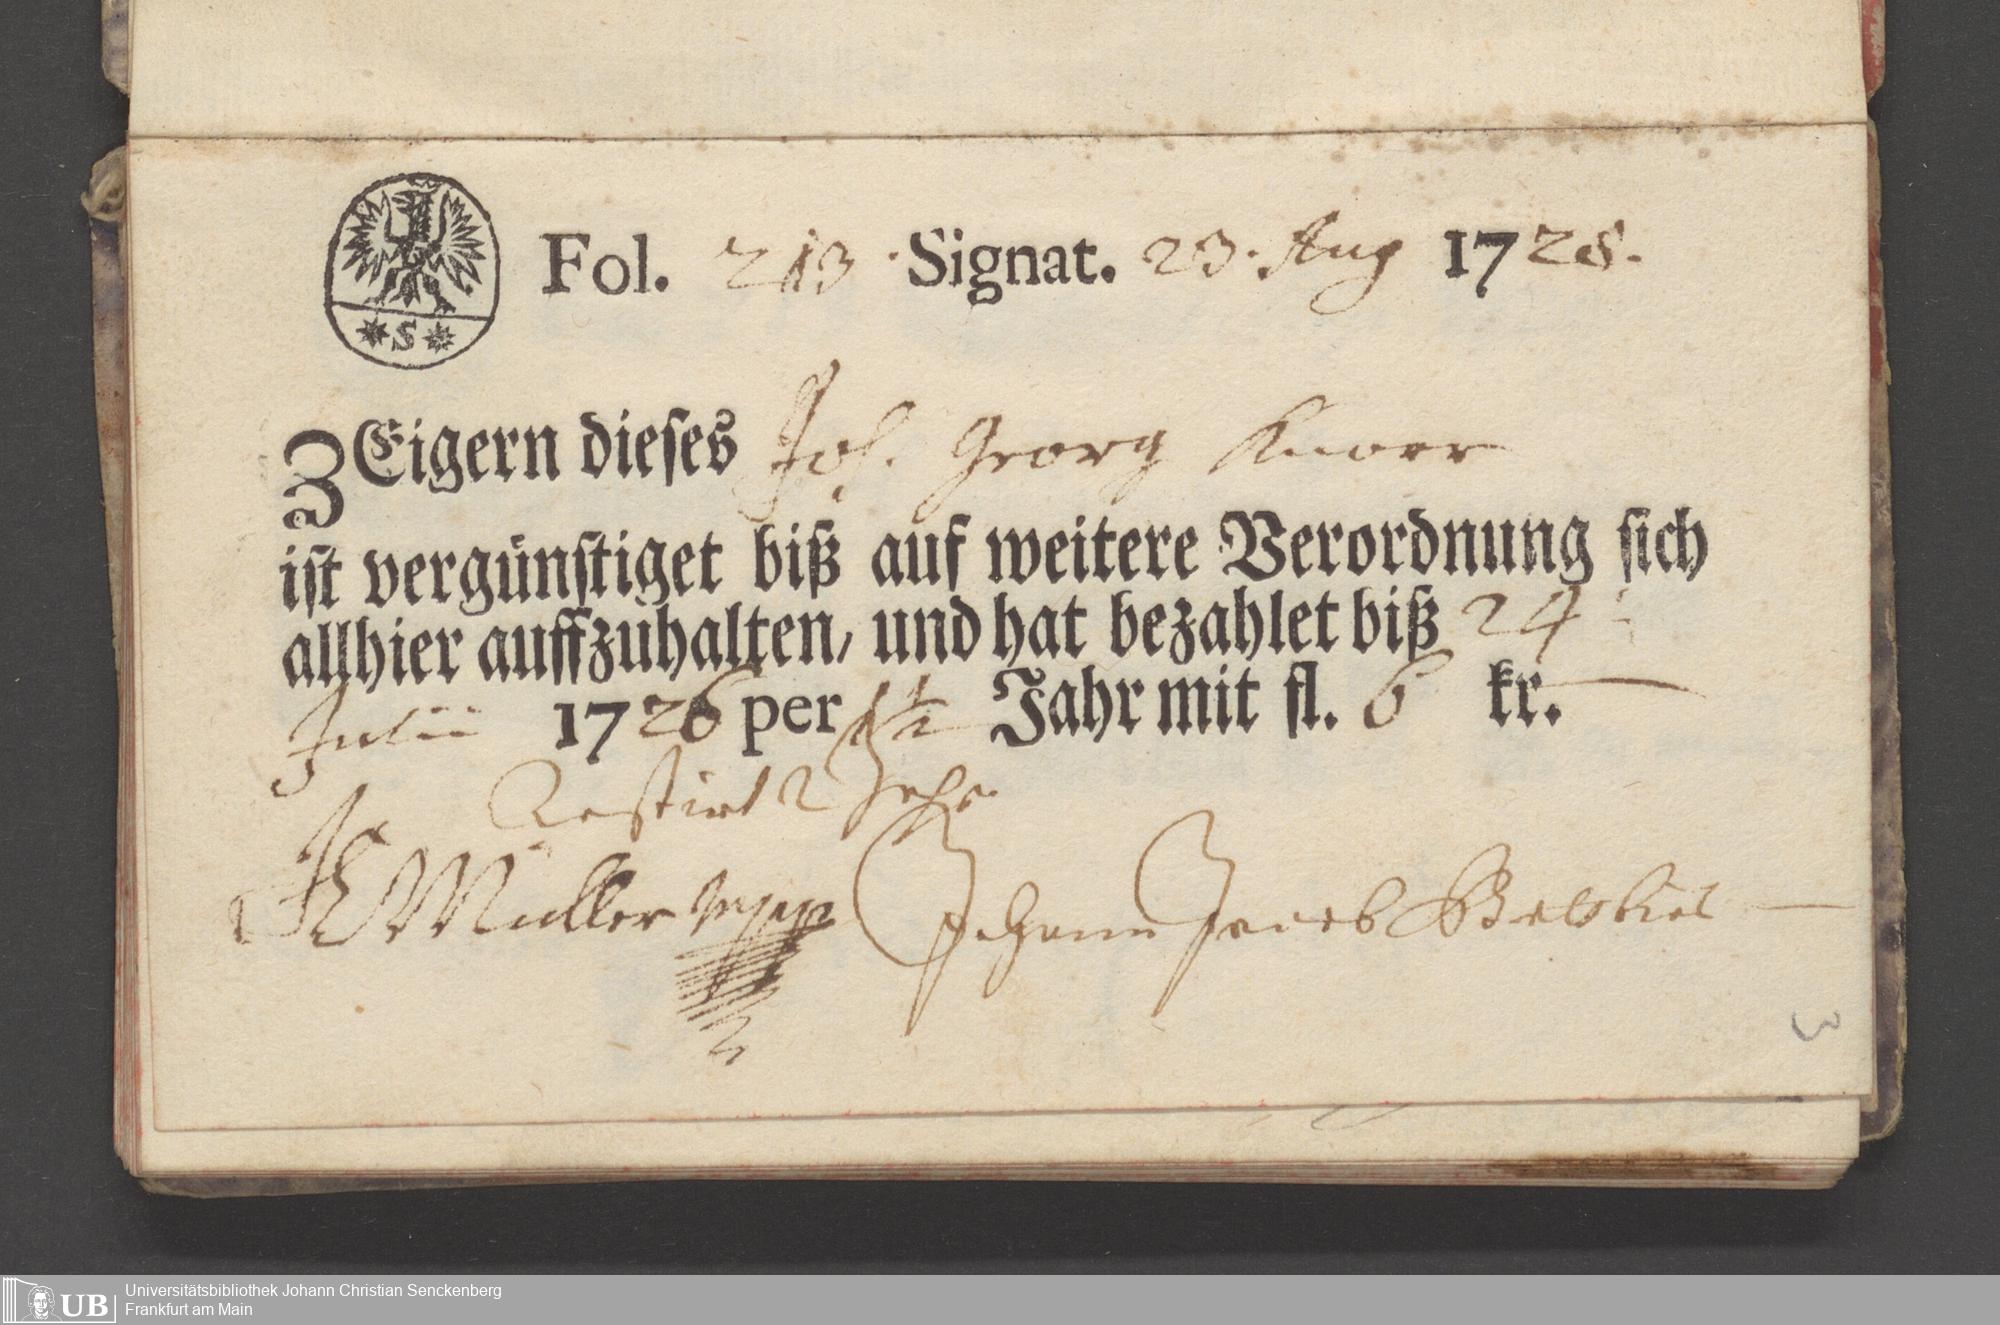 Fol. 213. Signat. 23. Aug 1728.
* S *
ZEigern dieses Joh. Georg Knorr
ist vergünstiget biß auf weitere Verordnung sich
allhier auffzuhalten, und hat bezahlet biß 24
Julii 1726 per 1½ Jahr mit fl. 6 kr. —
Restirt 2 Jahr
Müller mpp Johann Jacob
3
Universitätsbibliothek Johann Christian Senckenberg
Frankfurt am Main
UB